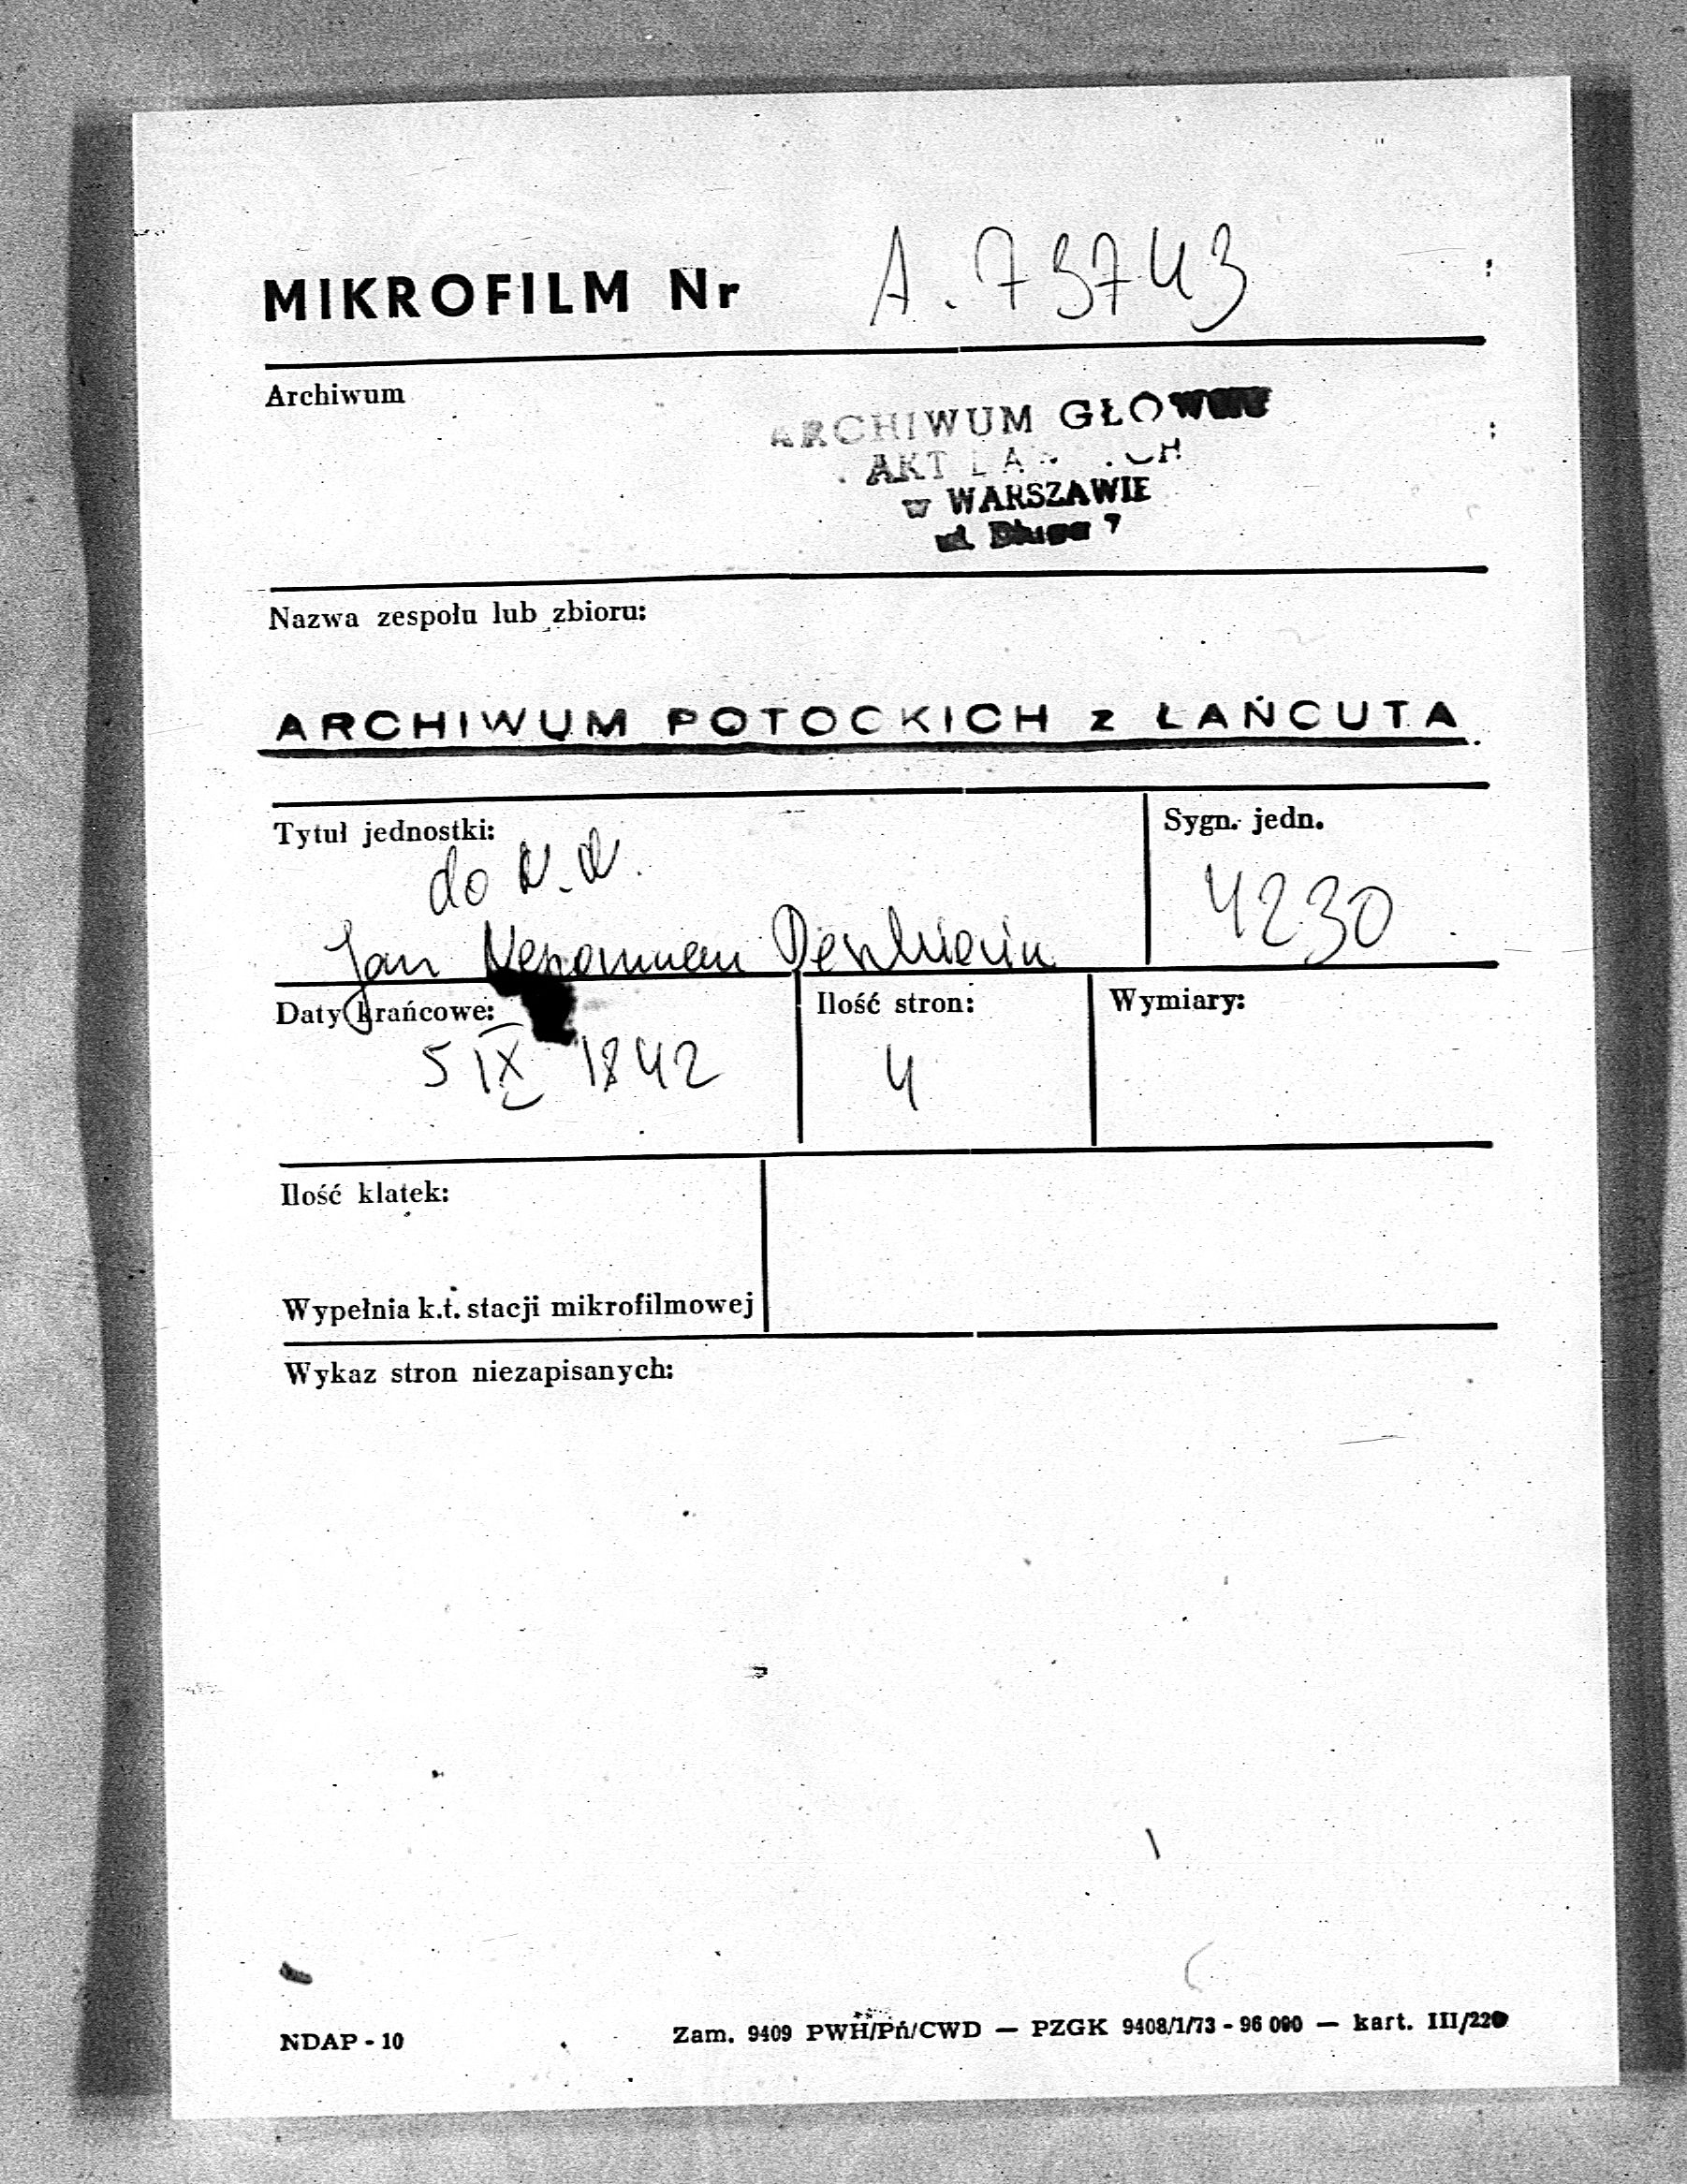 MIKROFILM Nr A. 73743
Archiwum
ARCHIWUM GŁOWNE
AKT
w WARSZAWIE
ul. Długa 7
Nazwa zespołu lub zbioru:
ARCHIWUM POTOCKICH z ŁAŃCUTA
Tytuł jednostki:
Sygn. jedn.
do N.N.
4230
Jan Nepomucen
Daty krańcowe:
Ilość stron:
Wymiary:
5 IX 1842
4
Ilość klatek:
Wypełnia k.t. stacji mikrofilmowej
Wykaz stron niezapisanych:
NDAP - 10
Zam. 9409 PWH/Pń/CWD — PZGK 9408/1/73 - 96 000 — kart. III/220